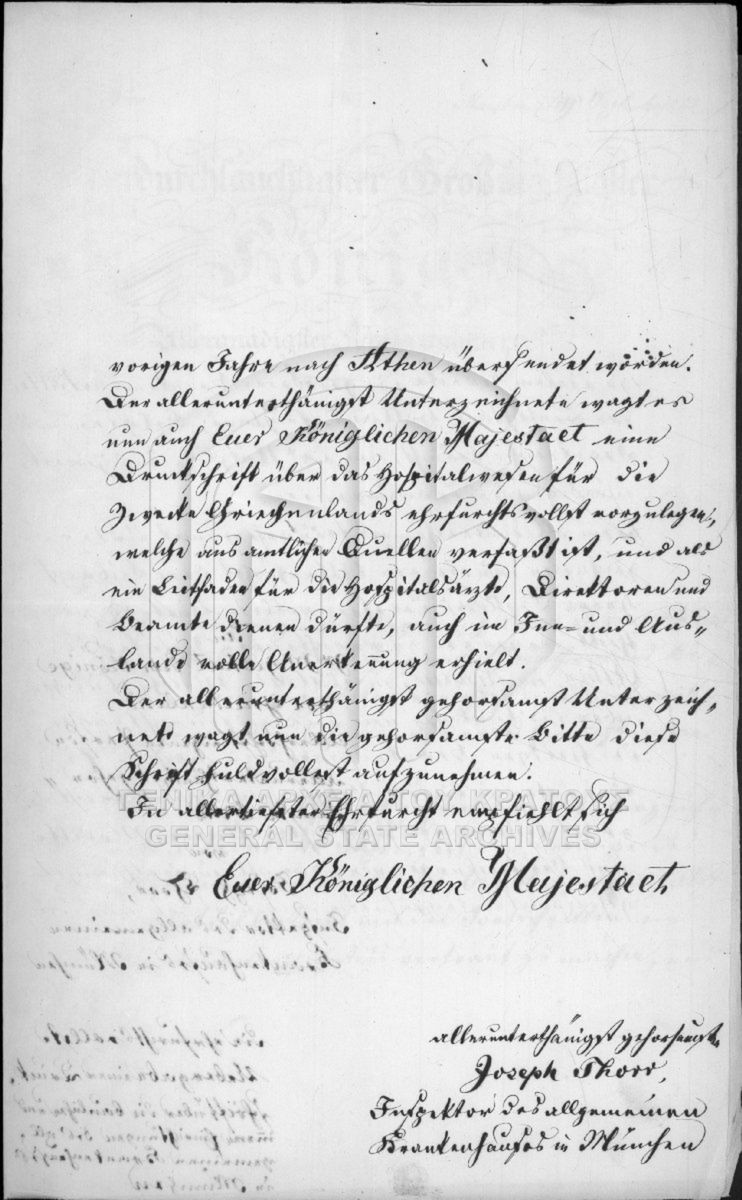 vorigen Jahre nach Athen übersendet worden.
Der allerunterthänigst Unterzeichnete wagt es
nun auch Euer Königlichen Majestaet eine
Druckschrift über das Hospitalwesen für die
Zwecke Griechenlands ehrfurchtsvollst vorzulegen,
welche aus amtlichen Quellen verfaßt ist, und als
ein Leitfaden für die Hospitalsärzte, Direktoren und
Beamte dienen dürfte, auch im Inn- und Aus-
lande volle Anerkennung erhielt.
Der allerunterthänigst gehorsamst Unterzeich-
nete wagt nun die gehorsamste Bitte diese
Schrift huldvollest aufzunehmen.
In allertiefster Ehrfurcht empfiehlt sich
ΓΕΝΙΚΑ ΑΡΧΕΙΑ ΤΟΥ ΚΡΑΤΟΥΣ
GENERAL STATE ARCHIVES
Euer Königlichen Majestaet
allerunterthänigst gehorsamst
Joseph Thorr,
Inspektor des allgemeinen
Krankenhauses in München